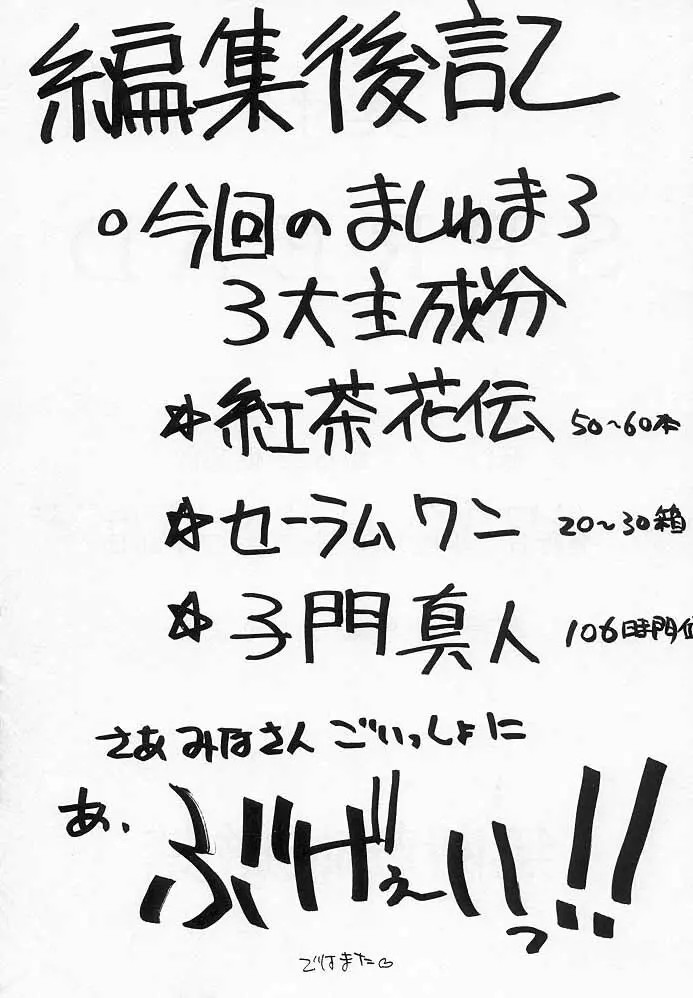 編集後記
○今回のましゅまろ
3大主成分
☆紅茶花伝 50～60本
☆セーラムワン 20～30箱
☆子門真人 106時間位
さあみなさんごいっしょに
あ、ぶげぇいっ!!
ではまた♡